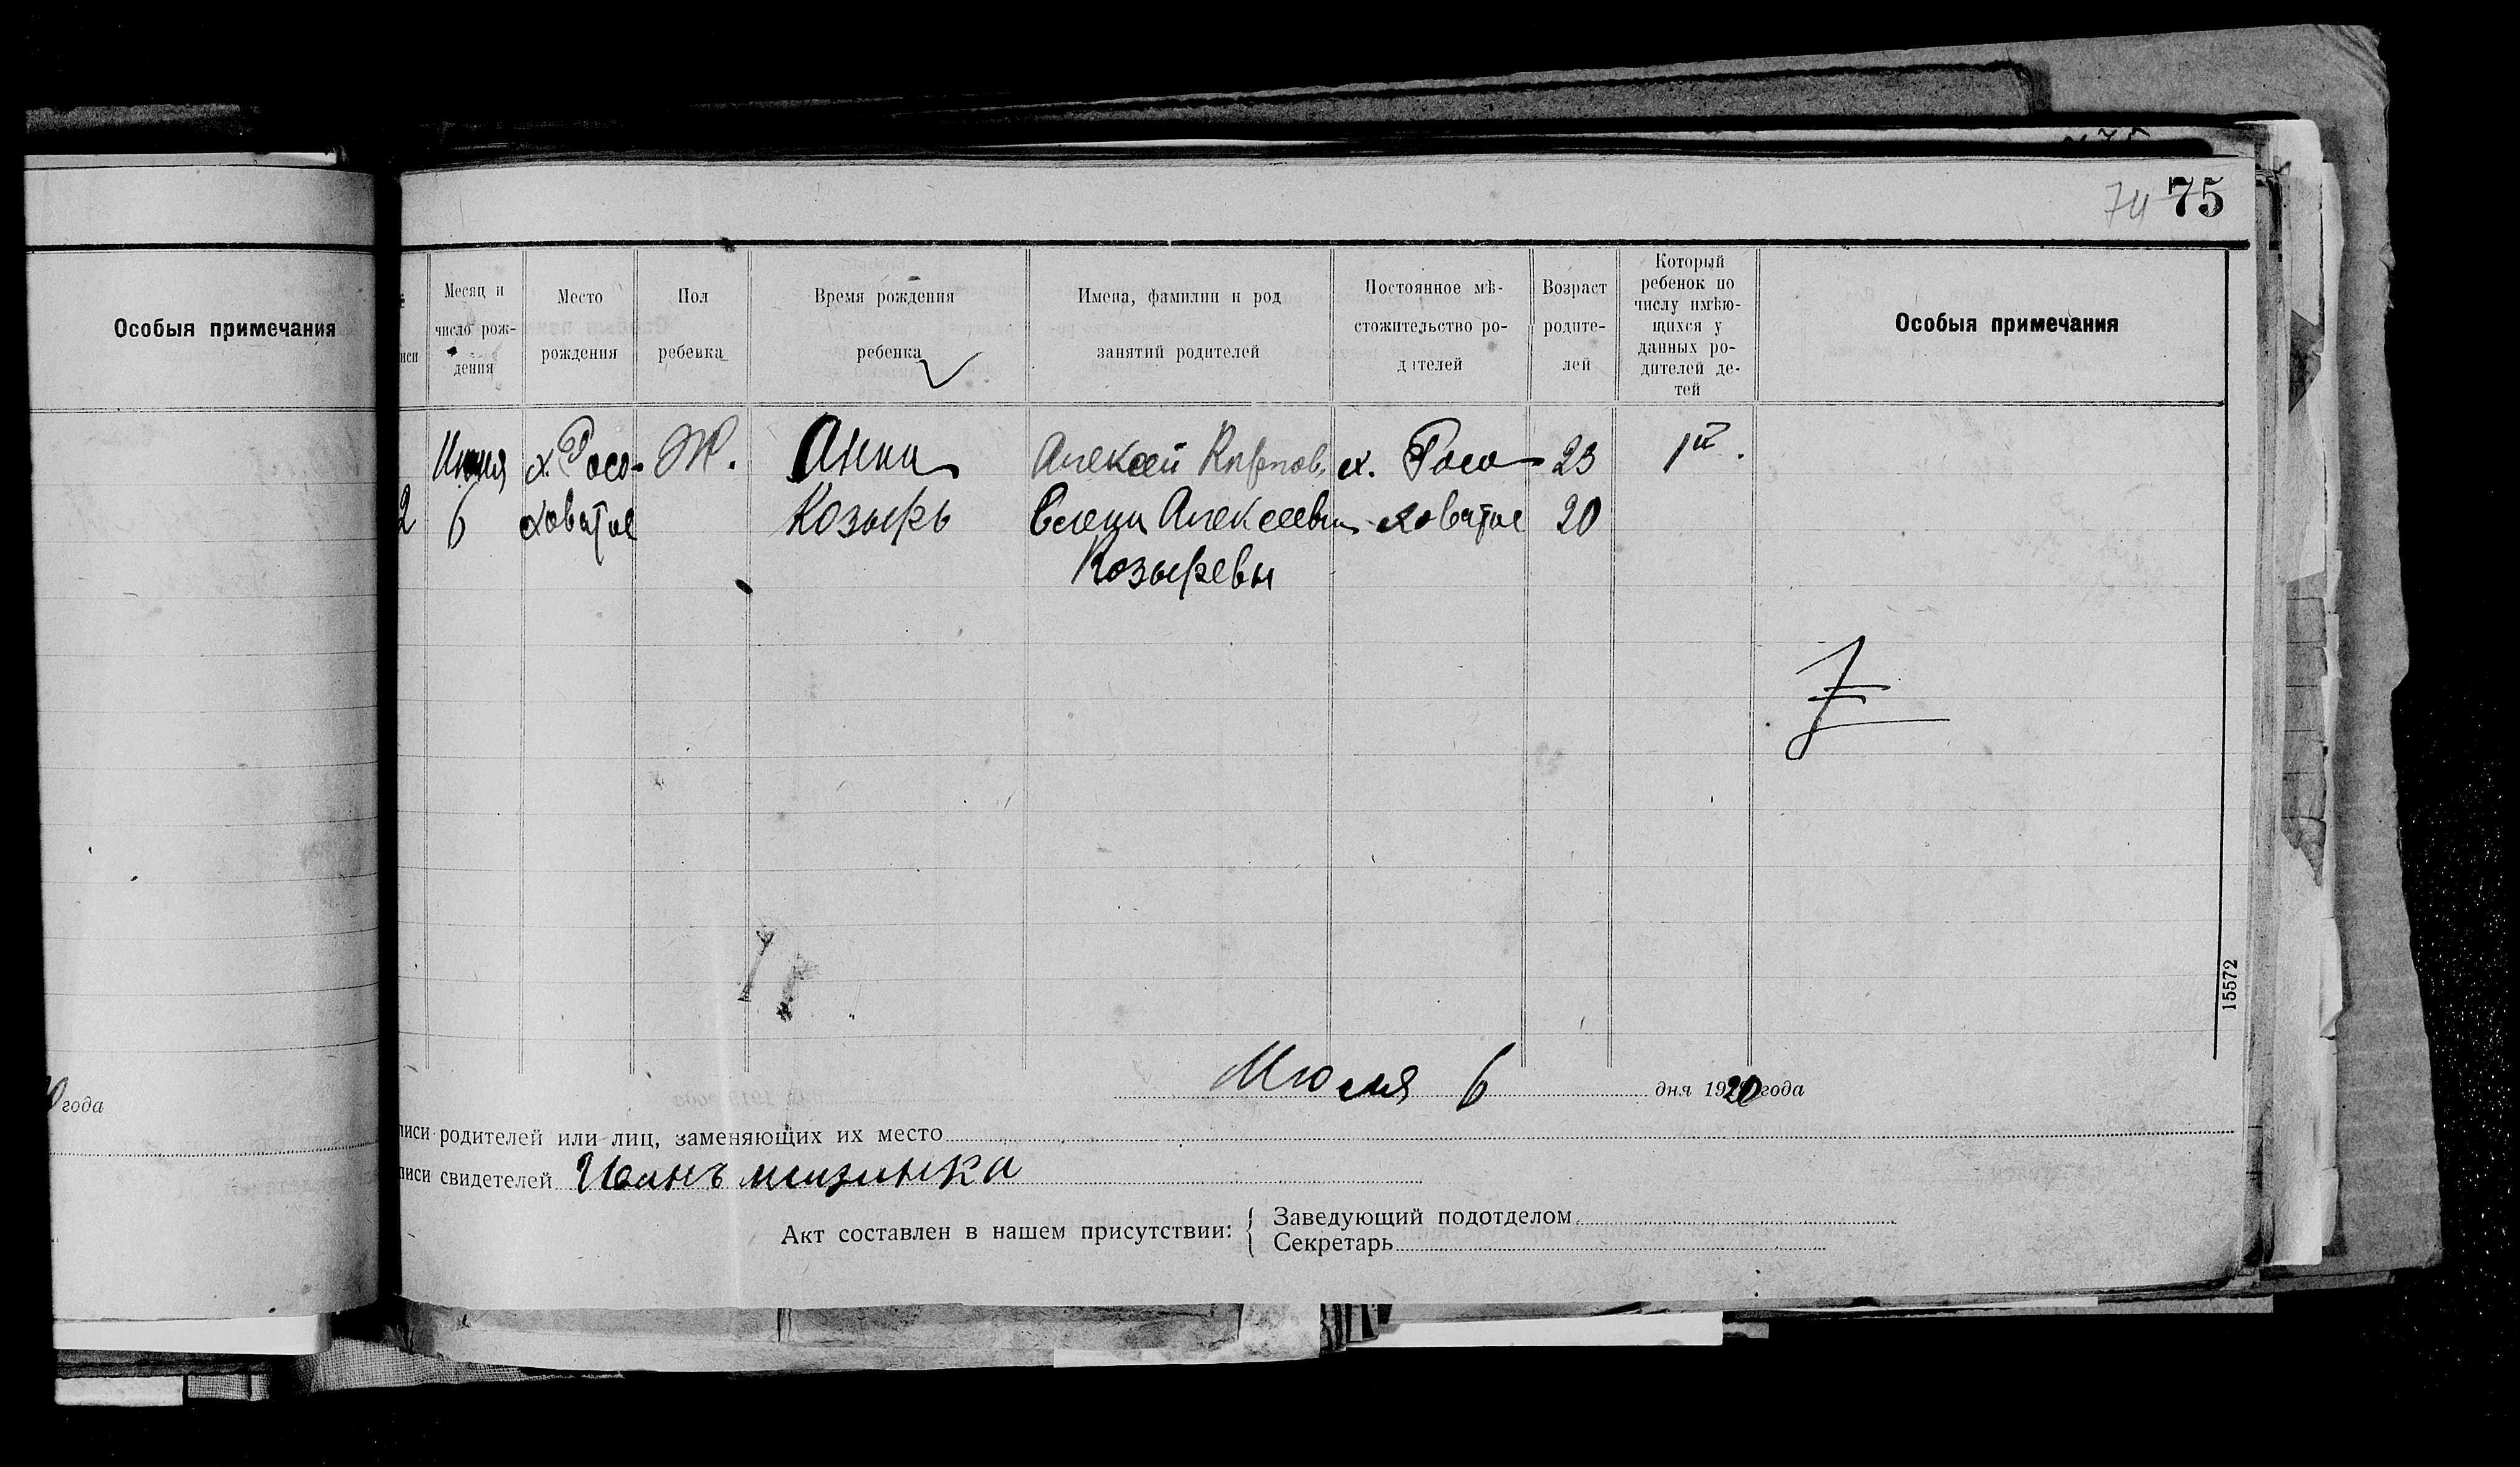 74 75
Особыя примечания
Месяц и число рож-дения
Место рождения
Пол ребенка
Время рождения ребенка
Имена, фамилии и род занятий родителей
Постоянное мѣ-стожительство ро-дителей
Возраст родите-лей
Который ребенок по числу имѣю-щихся у данных ро-дителей де-тей
Особыя примечания
х. Росо- Ж. Анна Алексей Карпов. х. Росо- 23 1й.
2 6 ховатое Козырь Елена Алексеевна ховатое 20
Козыревы
15572
Июля 6 дня 1920 года
0 года
писи родителей или лиц, заменяющих их место
писи свидетелей Иванъ мизинка
Акт составлен в нашем присутствии: { Заведующий подотделом
Секретарь